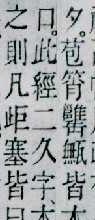 夕。苞筲甒皆木
口。此經二久字
之則凡歫塞皆曰